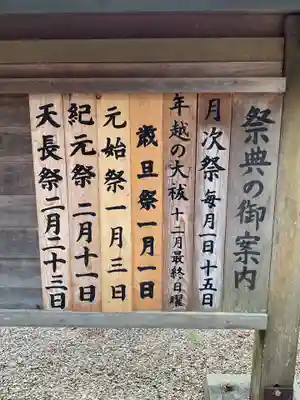 祭典の御案内
月次祭 毎月一日 十五日
年越の大祓 十二月最終日曜
歳旦祭 一月一日
元始祭 一月三日
紀元祭 二月十一日
天長祭 二月二十三日